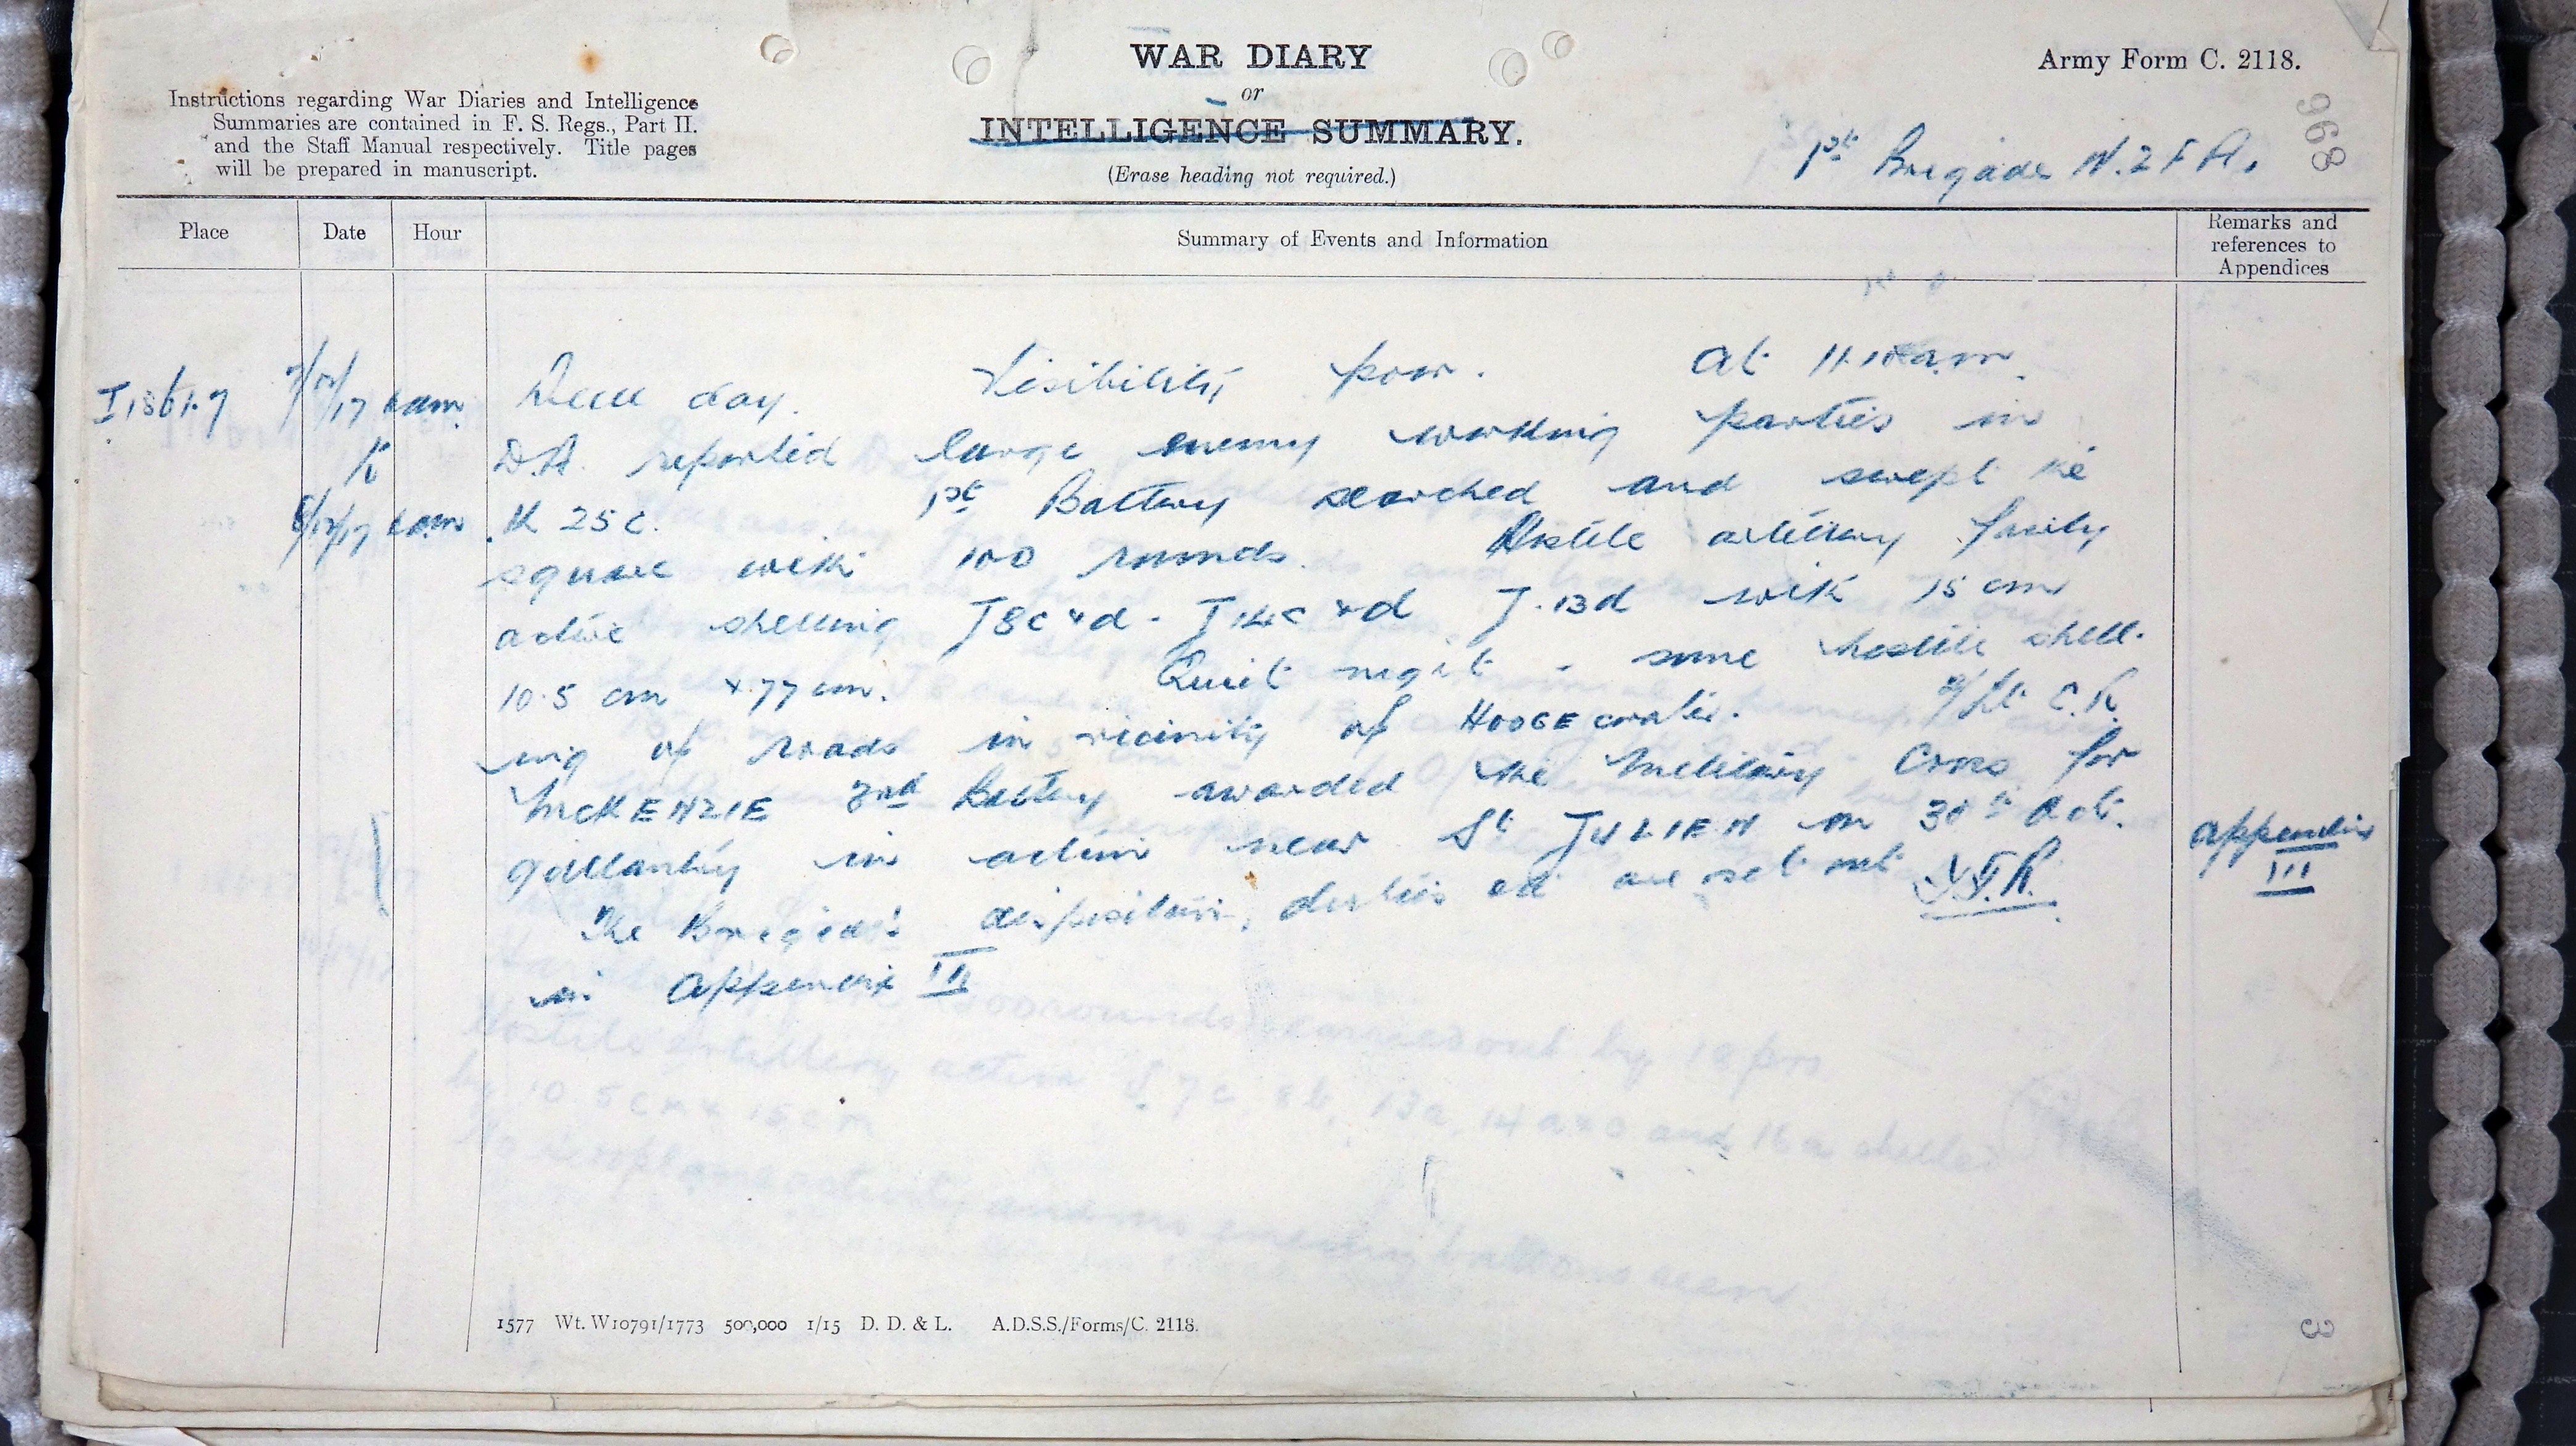 WAR DIARY
or
INTELLIGENCE SUMMARY.
(Erase heading not required.)
Army Form C. 2118.
Instructions regarding War Diaries and Intelligence
Summaries are contained in F. S. Regs., Part II.
and the Staff Manual respectively. Title pages
will be prepared in manuscript.
968
1st Brigade N.Z.F.A.
Place Date Hour Summary of Events and Information Remarks and references to Appendices
7/12/17 6am Dull day. Visibility poor. At 11.10 am
to D.A. reported large enemy working parties in
8/12/17 6am K 25 c. 1st Battery searched and swept the
square with 100 rounds. Hostile artillery fairly
active shelling J8c & d - J14c & d J.13d with 15 cm
10.5 cm & 77 cm. Quiet night - some hostile shell-
ing of roads in vicinity of HOOGE crater. 2/Lt C.R.
McKENZIE 3rd Battery awarded the Military Cross for
gallantry in action near St JULIEN on 30th Oct.
The Brigade's disposition, duties etc are set out
in Appendix III
Appendix
III
1577 Wt. W10791/1773 500,000 1/15 D. D. & L. A.D.S.S./Forms/C. 2118.
3